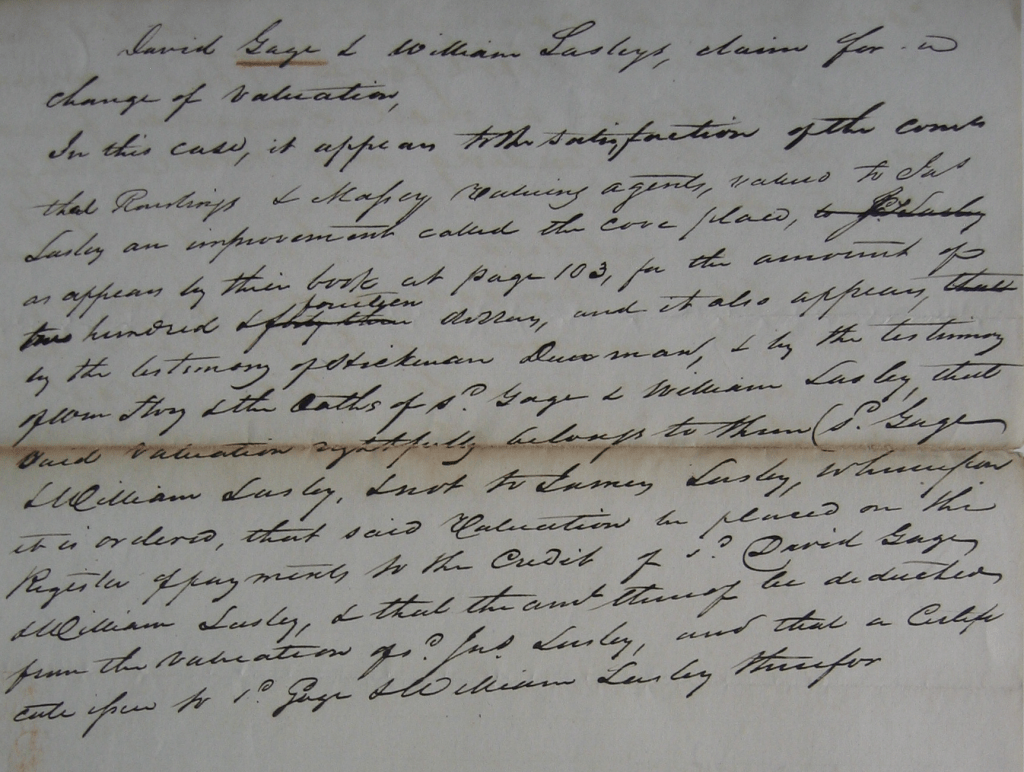 David Gage & William Lasleys, claim for a
change of valuation,
In this case, it appears to the satisfaction of the comte
that Rawlings & Massey valuing agents, valued to Jas
Lasley an improvement called the cove place, to Jas Lasley
as appears by their book at page 103, for the amount of
two hundred & forty three fourteen dollars, and it also appears, that
by the testimony of Hickman & by the testimony
of & the oaths of sd. Gage & William Lasley, that
said valuation rightfully belongs to them (sd. Gage
& William Lasley, & not to James Lasley, whereupon
it is ordered, that said valuation be placed on the
Register of payments to the credit of sd. David Gage
& William Lasley, & that the amt thereof be deducted
from the valuation of sd. Jas. Lasley, and that a Certifi
cate issue to sd. Gage & William Lasley therefor